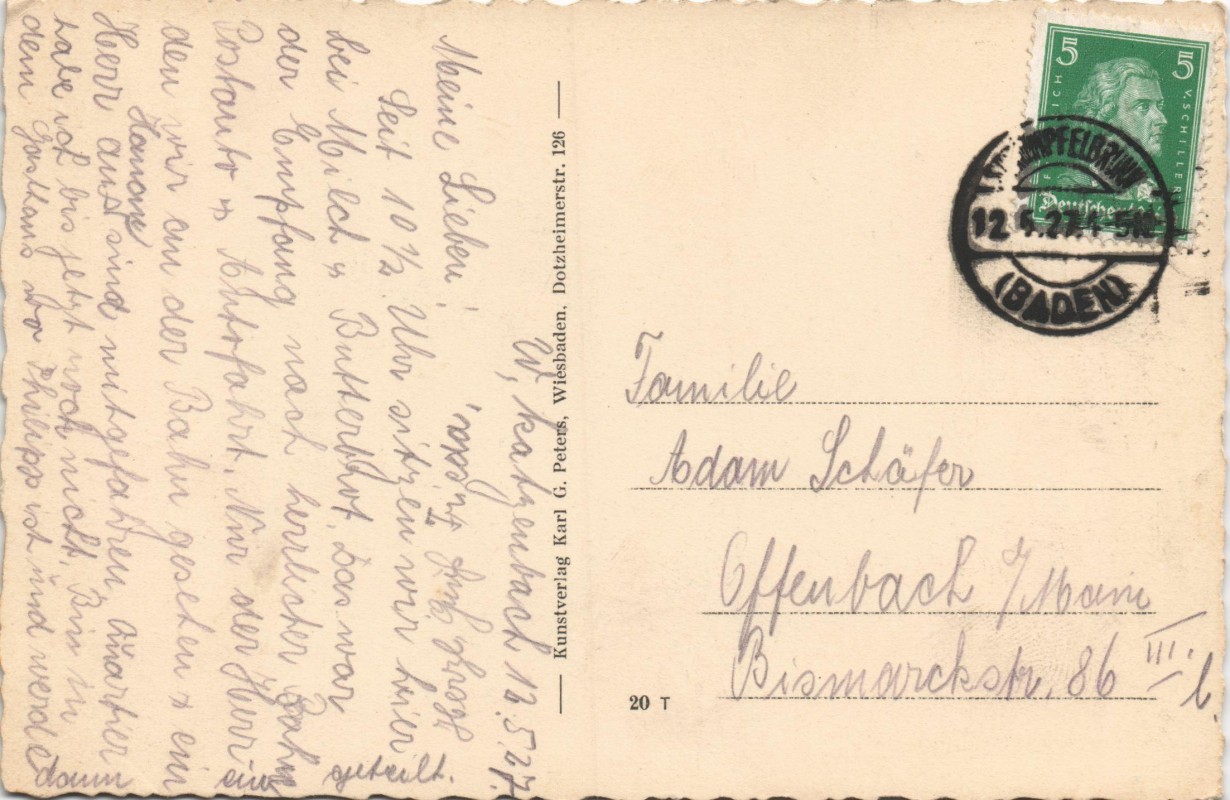 W, Katzenbach 12.5.27.
Meine Lieben!
Seit 10½ Uhr sitzen wir hier
bei Milch u Butterbrot. Das war
der Empfang nach herrlicher Bahn
Postauto u Autofahrt. Nur der Herr
den wir an der Bahn gesehen u ein
Herr aus Hanau sind mitgefahren. Quartier
habe ich bis jetzt noch nicht. Bin in
dem Gasthaus wo Philipp ist und werde
dann ein geteilt.
Kunstverlag Karl G. Peters, Wiesbaden, Dotzheimerstr. 126
5 5
V. SCHILLER
Deutsches
MPFELBRUNN
12.5.27.4-5N.
(BADEN)
Familie
Adam Schäfer
Offenbach /Main
Bismarckstr. 86 III.
20 T